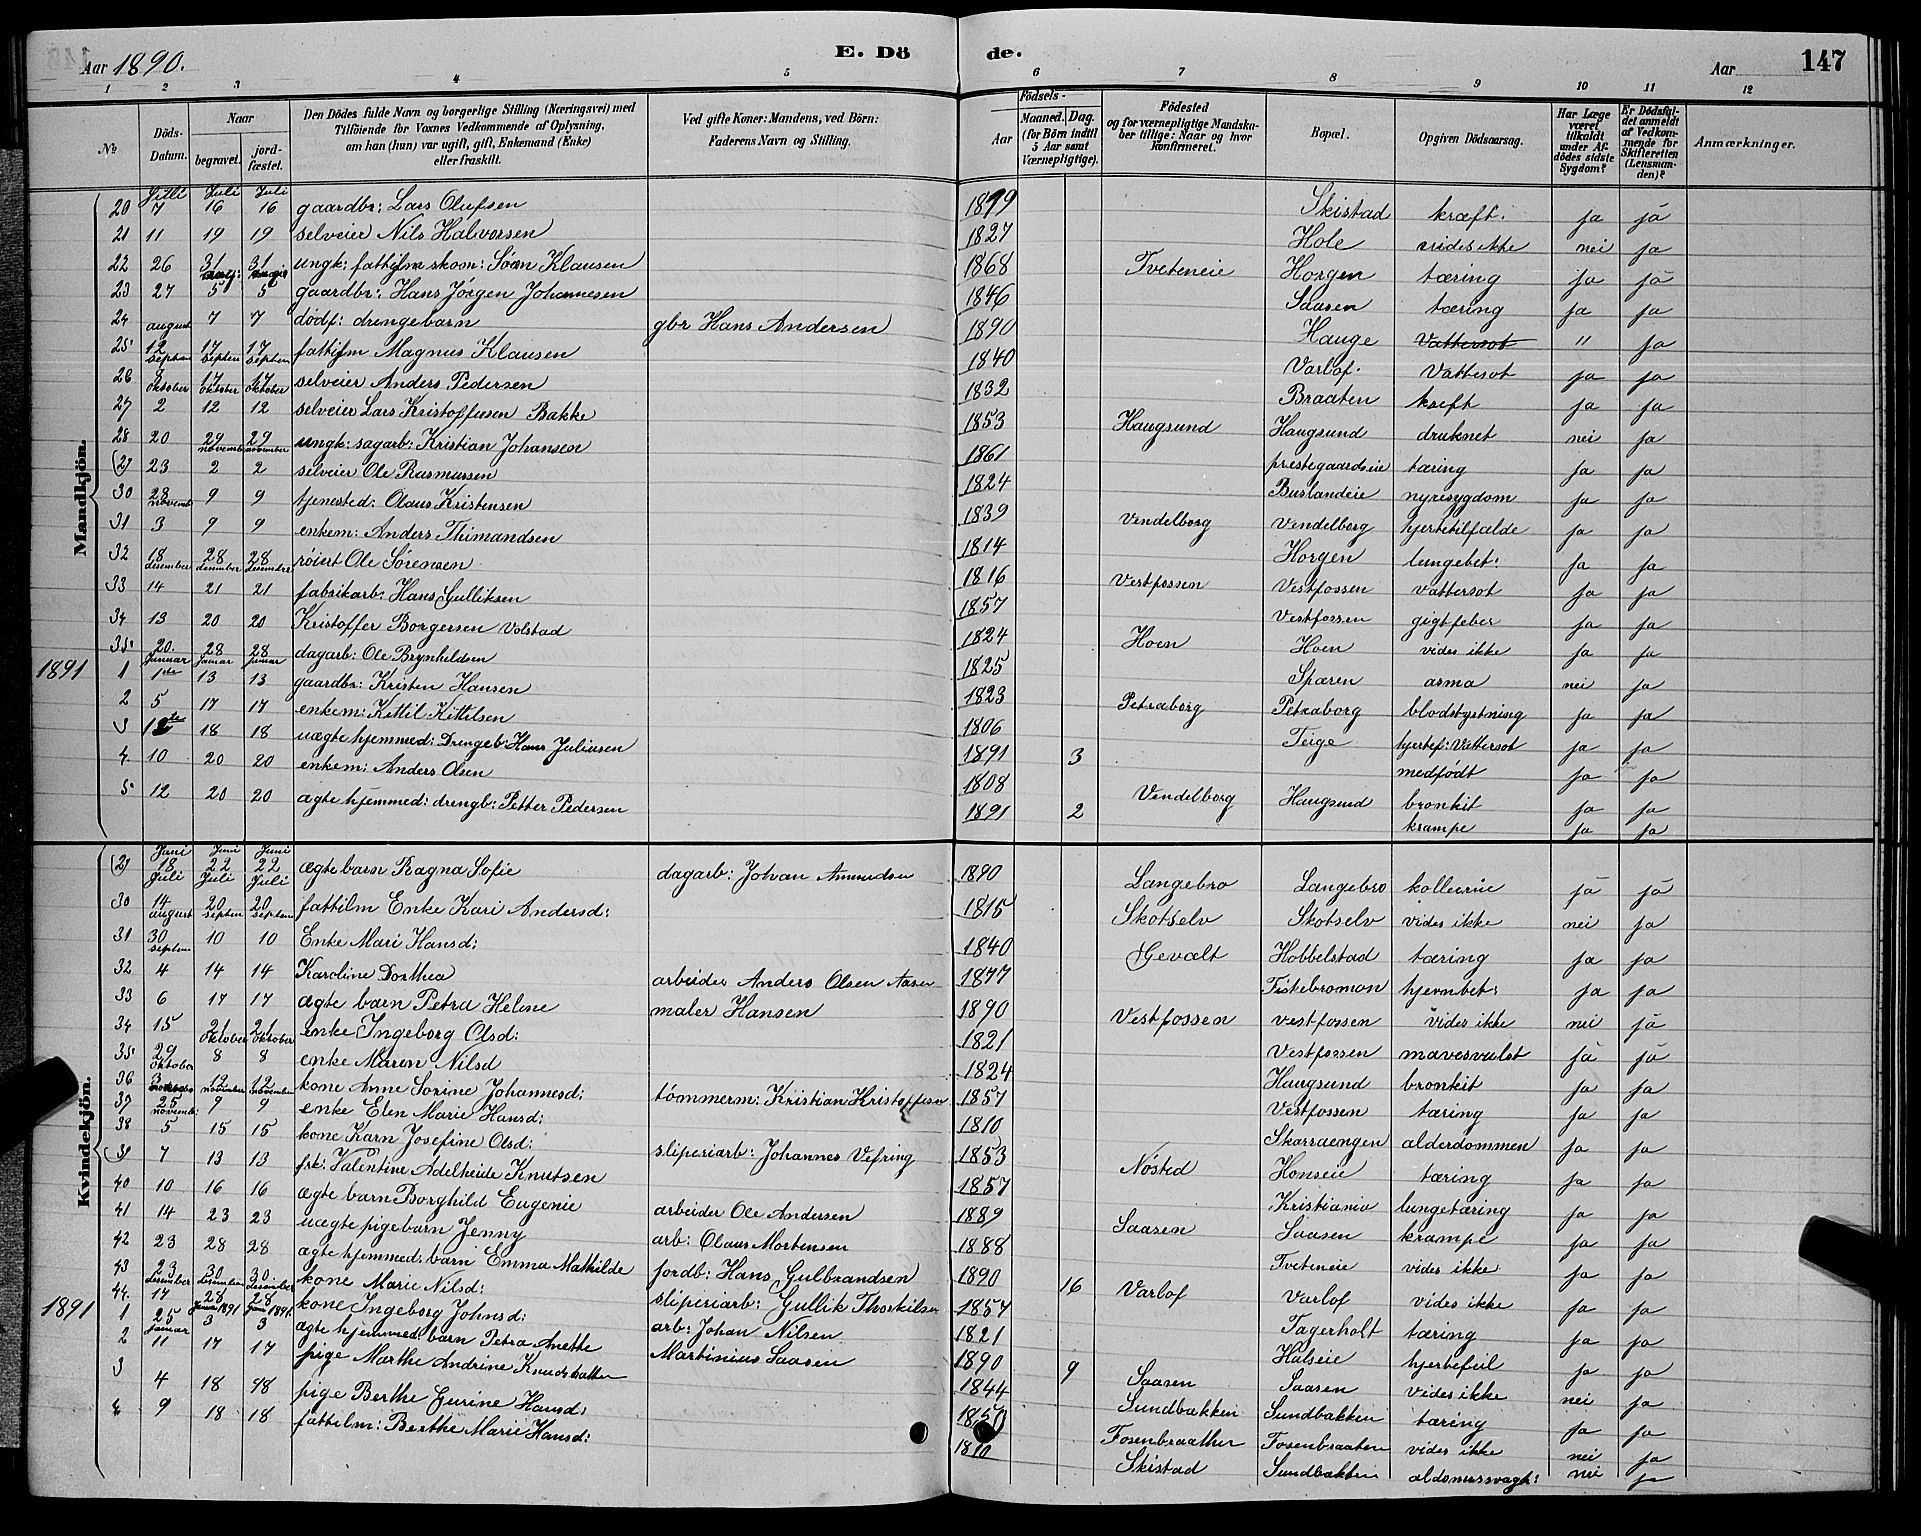 Aar 1890. E. Dö de. Aar 147
1 2 3 4 5 6 7 8 9 10 11 12
№ Döds-Datum. Naar begravet. jordfæstet. Den Dödes fulde Navn og borgerlige Stilling (Næringsvei) med Tilföiende for Voxnes Vedkommende af Oplysning, om han (hun) var ugift, gift, Enkemand (Enke) eller fraskilt. Ved gifte Koner: Mandens, ved Börn: Faderens Navn og Stilling. Födsels- Aar Maaned. Dag. (for Börn indtil 5 Aar samt Værnepligtige). Födested og for værnepligtige Mandskaber tillige: Naar og hvor konfirmeret. Bopæl. Opgiven Dödsaarsag. Har Læge været tilkaldt under Afdödes sidste Sygdom? Er Dödsfaldet anmeldt af Vedkommende for Skifteretten (Lensmanden)? Anmærkninger.
Mandkjön.
Juli Juli Juli
20 7 16 16 gaardbr: Lars Olufsen 1899 Skistad kræft. ja ja
21 11 19 19 selveier Nils Halvorsen 1827 Hole vides ikke nei ja
22 26 31 31 ungk: fattiglm skom: Søren Klausen 1868 Tveteneie Horgen tæring ja ja
23 27 5 5 gaardbr: Hans Jörgen Johannesen 1846 Saasen tæring ja ja
24 august 7 7 dødf: drengebarn gbr Hans Andersen 1890 Hauge Vattersot " ja
25 12 17 17 fattiglm Magnus Klausen 1840 Varlof. Vattesot ja ja
septem septem septem
26 8 17 17 selveier Anders Pedersen 1832 Braaten kreft ja ja
oktober oktober oktober
27 2 12 12 selveier Lars Kristoffersen Bakke 1853 Haugsund Haugsund druknet nei ja
28 20 29 29 ungk: sagarb: Kristian Johansen 1861 prestegaardseie tæring ja ja
november november
29 23 2 2 selveier Ole Rasmussen 1824 Buslandeie nyresygdom ja ja
30 28 9 9 tjenested: Olaus Kristensen 1839 Vendelborg Vendelborg hjertetilfælde ja ja
novemb
31 3 9 9 enkem: Anders Thimandsen 1814 Horgen lungebet: ja ja
32 18 28 28 røiert Ole Sörensen 1816 Vestfossen Vestfossen vattersot ja ja
desember desember desember
33 14 21 21 fabrikarb: Hans Gulliksen 1857 Vestfossen gigtfeber ja ja
34 13 20 20 Kristoffer Borgersen Volstad 1824 Hoen Hoen vides ikke ja ja
35 20. 28 28 dagarb: Ole Brynhildsen 1825 Sparen asma nei ja
1891 Januar Januar Januar
1 1ste 13 13 gaardbr: Kristen Hansen 1823 Petraborg Petraborg blodstyrtning ja ja
2 5 17 17 enkem: Kittil Kittilsen 1806 Teige hjertef: Vattersot ja ja
3 12te 18 18 uægte hjemmed: Drengeb: Hans Juliusen 1891 3 medfödt ja ja
4. 10 20 20 enkem: Anders Olsen 1808 Vendelborg Haugsund bronkit ja ja
5 12 20 20 ægte hjemmed: drengb: Petter Pedersen 1891 2 krampe ja ja
Kvindekjön.
Juni Juni Juni
29 18 22 22 ægte barn Ragna Sofie dagarb: Johan Amundsen 1890 Langebro Langebro kollerine ja ja
Juli Juli Juli
30 14 20 20 fattilm Enke Kari Andersd: 1815 Skotselv Skotselv vides ikke nei ja
august septem septem
31 30 10 10 Enke Mari Hansd: 1840 Gevalt Hobbelstad tæring ja ja
septem
32 4 14 14 Karoline Dorthea arbeider Anders Olsen Aasen 1877 Fiskebromon hjernbet: ja ja
33 6 17 17 ægte barn Petra Helene maler Hansen 1890 Vestfossen vestfossen vides ikke nei ja
34 15 21 21 enke Ingeborg Olsd: 1821 Vestfossen mavesvulst ja ja
oktober oktober
35 29 8 8 enke Maren Nilsd 1824 Haugsund bronkit ja ja
oktober
36 3 12 12 kone Anne Sorine Johannesd: tömmerm: Kristian Kristoffersen 1857 Vestfossen tæring ja ja
november november
37 25 9 9 enke Elen Marie Hansd: 1810 Skarraengen alderdommen ja ja
novemb:
38 5 15 15 kone Karn Josefine Olsd: sliperiarb: Johannes Vefring 1853 Nösted Honseie tæring ja ja
39 7 13 13 frk: Valentine Adelheide Knutsen 1857 Kristiania lungetæring ja ja
40 10 16 16 ægte barn Borghild Eugenie arbeider Ole Andersen 1889 Saasen Saasen krampe ja ja
41 14 23 23 uægte pigebarn Jenny arb: Olaus Mortensen 1888 Tveteneie vides ikke ja ja
42 23 28 28 ægte hjemmed: barn Emma Mathilde jordb: Hans Gulbrandsen 1890 16 Varlof Varlof vides ikke ja ja
43 23 30 30 kone Marie Nilsd: sliperiarb: Gullik Thorkilsen 1857 Tagerholt tæring ja ja
desember desember desember
44. 17 28 28 kone Ingeborg Johnsd: arb: Johan Nilsen 1821 Halseie hjertefeil ja ja
1891 Januar 1891 Janu 1891
1 25 3 3 ægte hjemmed: barn Petra Anette Martinius Saasen 1890 9 Saasen Saasen vides ikke nei ja
Januar
2 11 17 17 pige Marthe Andrine Knudsdatter 1844 Sundbakken Sundbakken tæring ja ja
3 4 18 18 pige Berthe Gurine Hansd: 1850 Fosenbraathen Fosenbraaten vides ikke nei ja
4 9 18 18 fattilm: Berthe Marie Hansd: 1810 Skistad Sundbakken aldomssvagh: nei ja